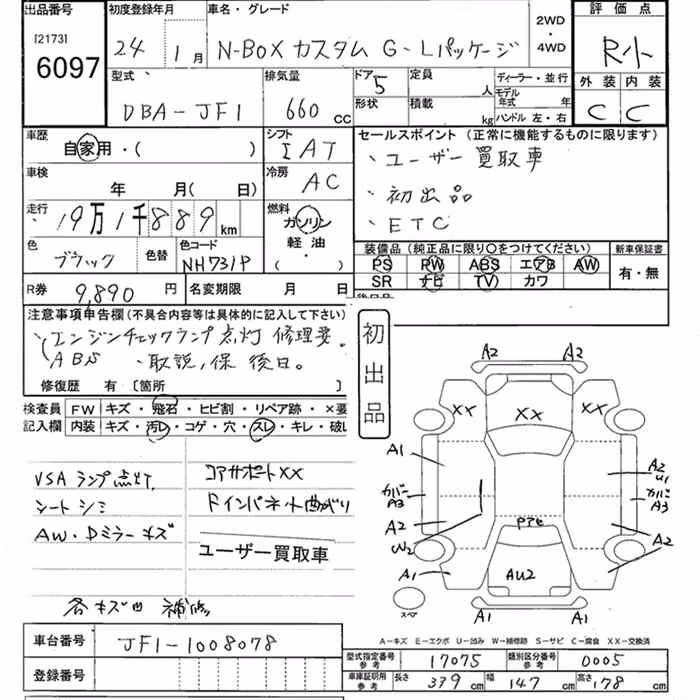 出品番号 初度登録年月 車名・グレード 2WD・4WD 評価点
[2173] 6097 24 1月 N-BOX カスタム G・Lパッケージ R小
型式 排気量 ドア 5 定員 人 ディーラー・並行 外装 内装
DBA-JF1 660cc 形状 積載 kg モデル年式 年 C C
ハンドル 左・右
車歴 自家用・( ) シフト IAT セールスポイント (正常に機能するものに限ります)
車検 年 月(日) 冷房 AC 、ユーザー買取車
、初出品
走行 19万1千889km 燃料 ガソリン 軽油・( ) 、ETC
色 ブラック 色替 色コード NH731P
装備品 (純正品に限り○をつけてください) 新車保証書
PS PW ABS エアB AW 有・無
SR ナビ TV カワ
R券 9,890円 名変期限 月 日
注意事項申告欄(不具合内容等は具体的に記入して下さい)
エンジンチェックランプ点灯 修理要。
ABS 、取説、保 後日。
修復歴 有 〔箇所 〕
初出品
検査員 FW キズ・飛石・ヒビ割・リペア跡・×要
記入欄 内装 キズ・汚レ・コゲ・穴・スレ・キレ・破レ
VSA ランプ点灯 コアサポートXX
シートシミ Fインパネット曲がり
AW・Dミラーキズ
ユーザー買取車
各キズ凹 補修
A2 A2
XX XX XX
A1 A2 U1
カバーA3 カバーA3
A2 A2
W2
A1 AU2 A2
スペア A1 A1
A-キズ E-エクボ U-凹み W-補修跡 S-サビ C-腐食 XX-交換済
車台番号 JF1-1008078
型式指定番号 参考 17075 類別区分番号 参考 0005
登録番号
車庫証明用 参考 長さ 339cm 幅 147cm 高さ 178cm